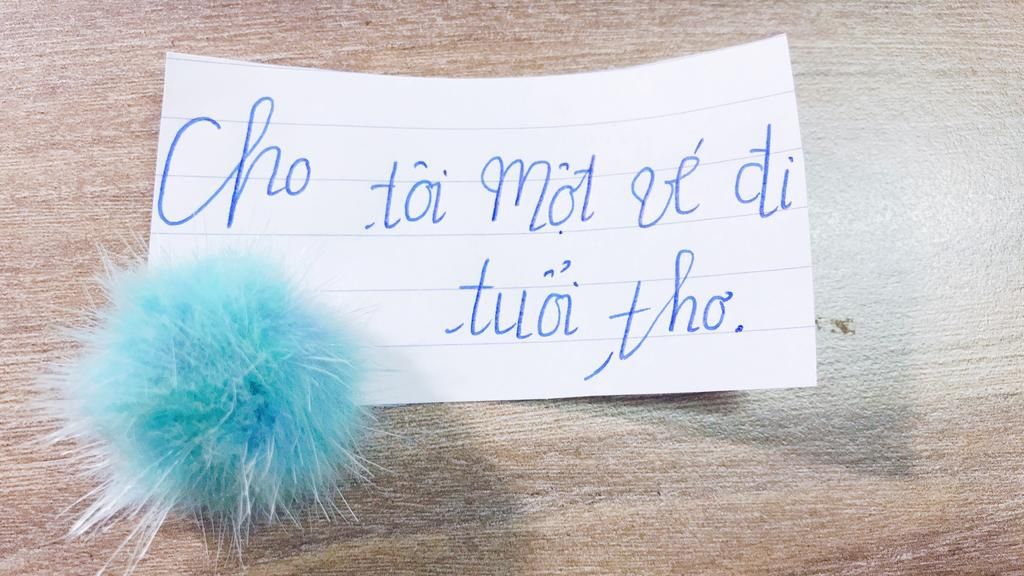 Cho tôi Một vé đi
tuổi thơ.